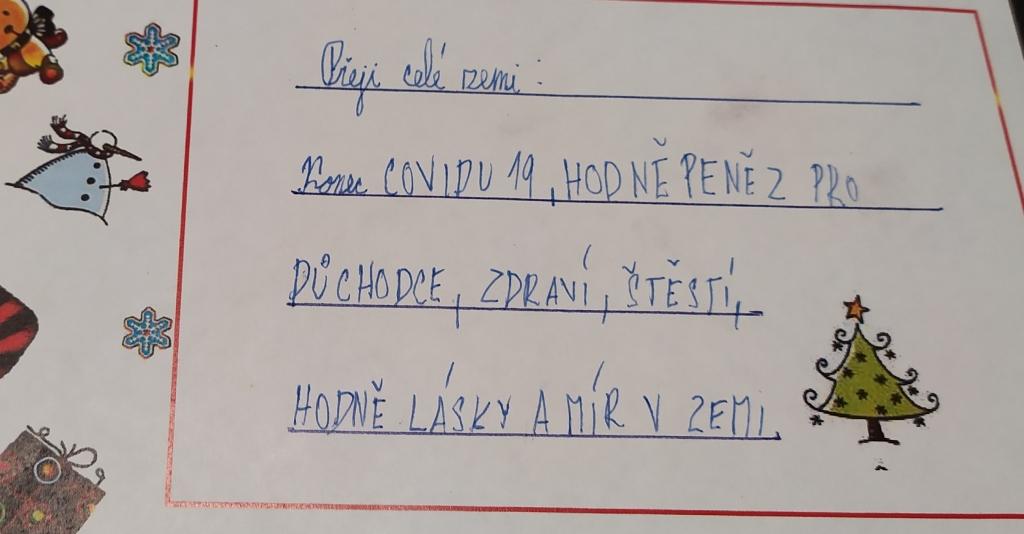 Přeji celé zemi:
Konec COVIDU 19, HODNĚ PENĚZ PRO
DŮCHODCE, ZDRAVÍ, ŠTĚSTÍ,
HODNĚ LÁSKY A MÍR V ZEMI.